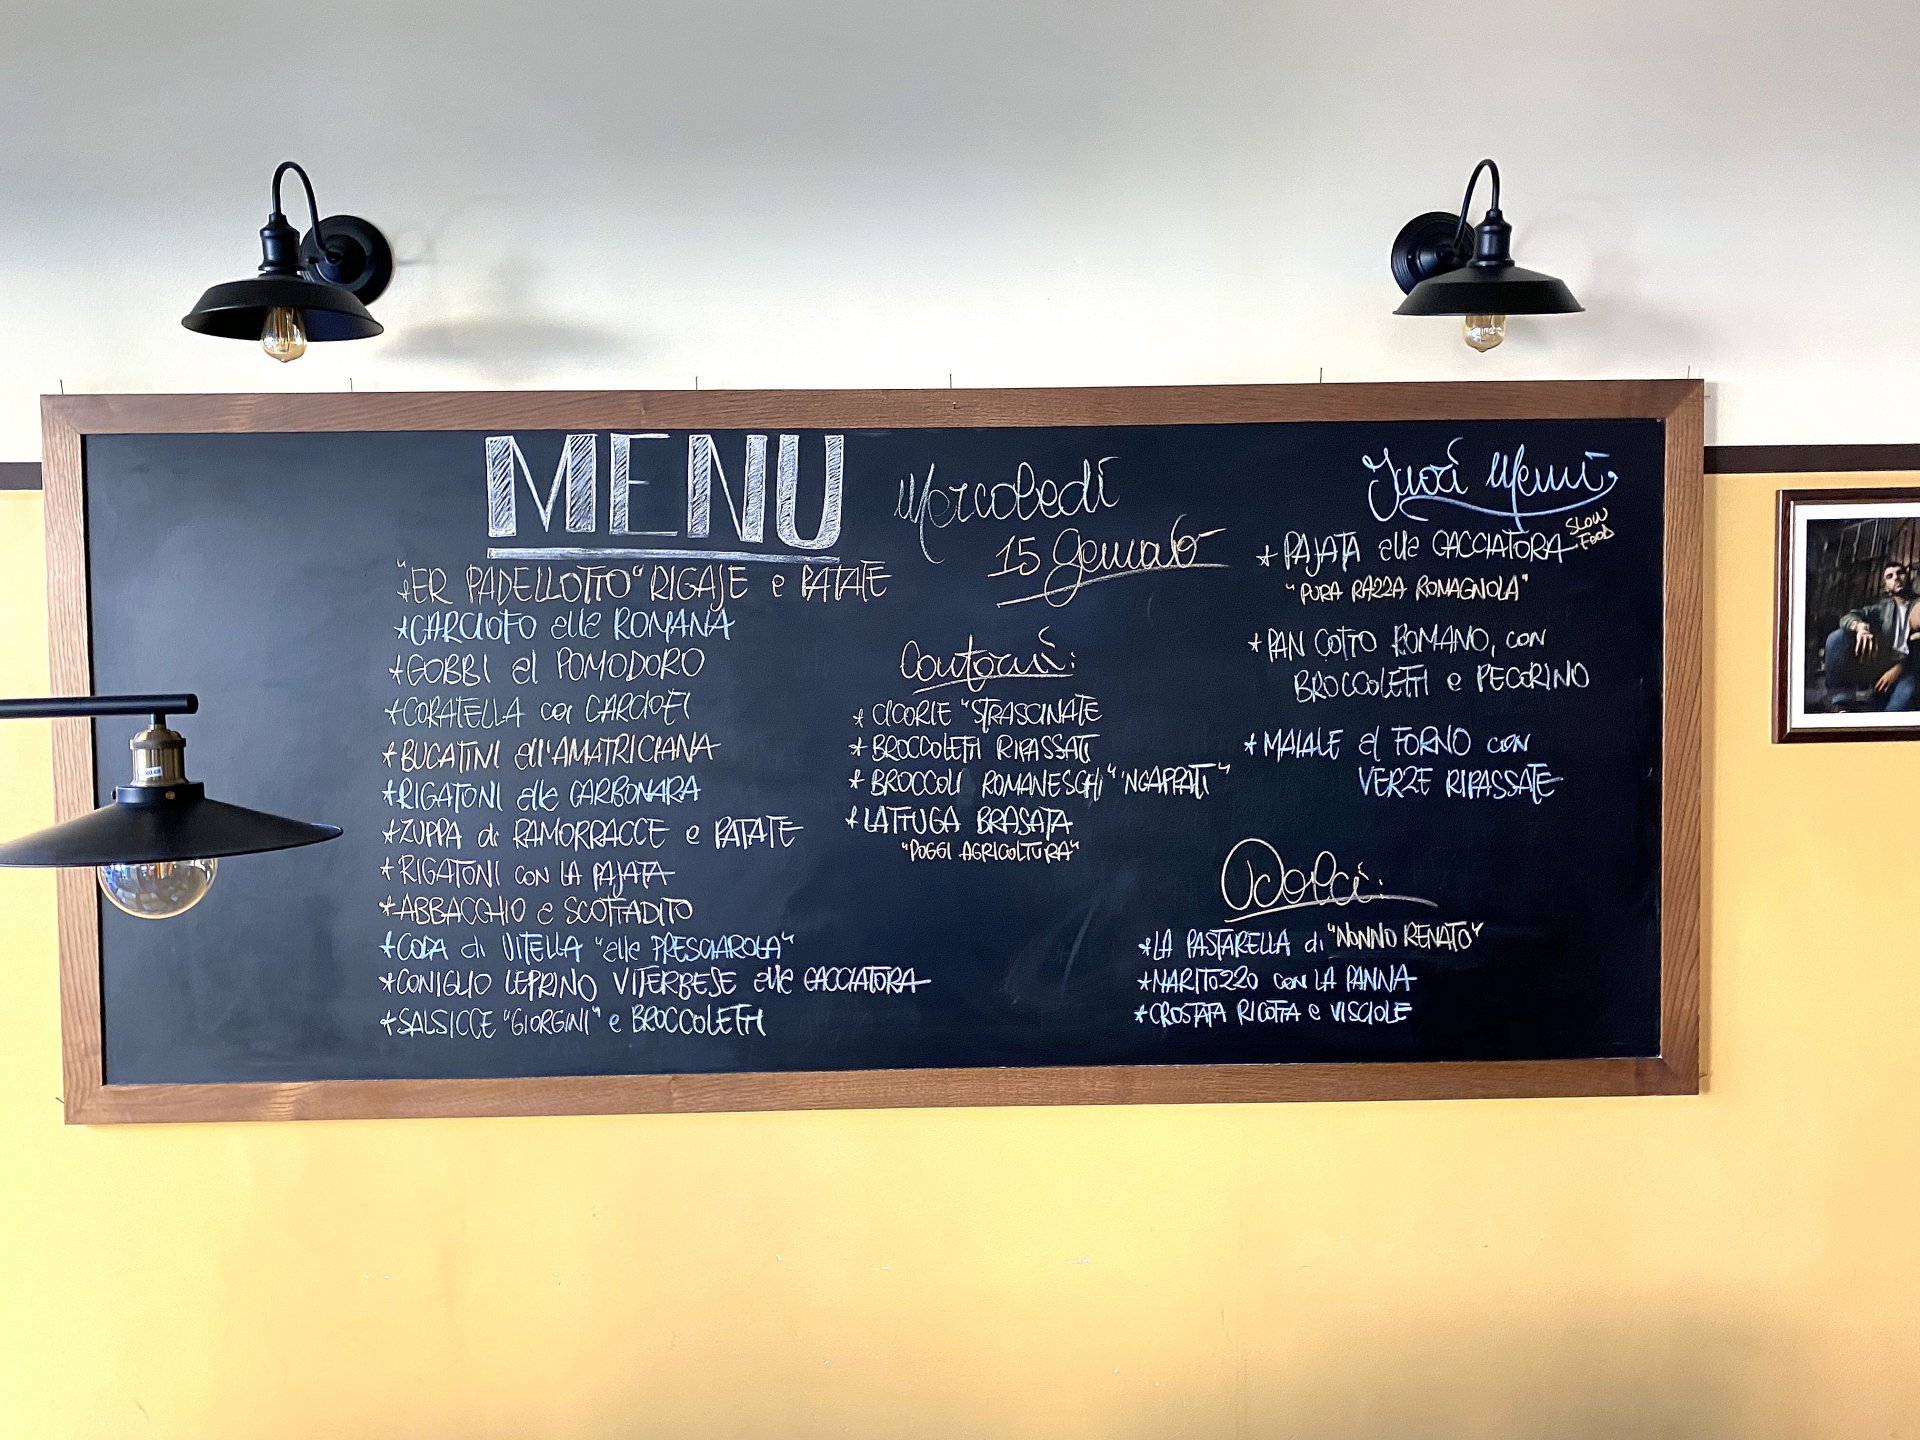 MENU
"ER PADELLOTTO" RIGAJE e PATATE
*CARCIOFO alla ROMANA
*GOBBI al POMODORO
*CORATELLA coi CARCIOFI
*BUCATINI all'AMATRICIANA
*RIGATONI alla CARBONARA
*ZUPPA di RAMORRACCE e PATATE
*RIGATONI con LA PAJATA
*ABBACCHIO a SCOTTADITO
*CODA di VITELLA "alla PRESCIAROLA"
*CONIGLIO LEPRINO VITERBESE alla CACCIATORA
*SALSICCE "GIORGINI" e BROCCOLETTI
Mercoledì
15 Gennaio
Contorni:
* CICORIE "STRASCINATE
* BROCCOLETTI RIPASSATI
* BROCCOLI ROMANESCHI "'NCAPPATI"
* LATTUGA BRASATA
"POGGI AGRICOLTURA"
Fuori Menu
* PAJATA alla CACCIATORA SLOW FOOD
"PURA RAZZA ROMAGNOLA"
* PAN COTTO ROMANO, con
BROCCOLETTI e PECORINO
* MAIALE al FORNO con
VERZE RIPASSATE
Dolci:
*LA PASTARELLA di "NONNO RENATO"
*MARITOZZO con LA PANNA
*CROSTATA RICOTTA e VISCIOLE